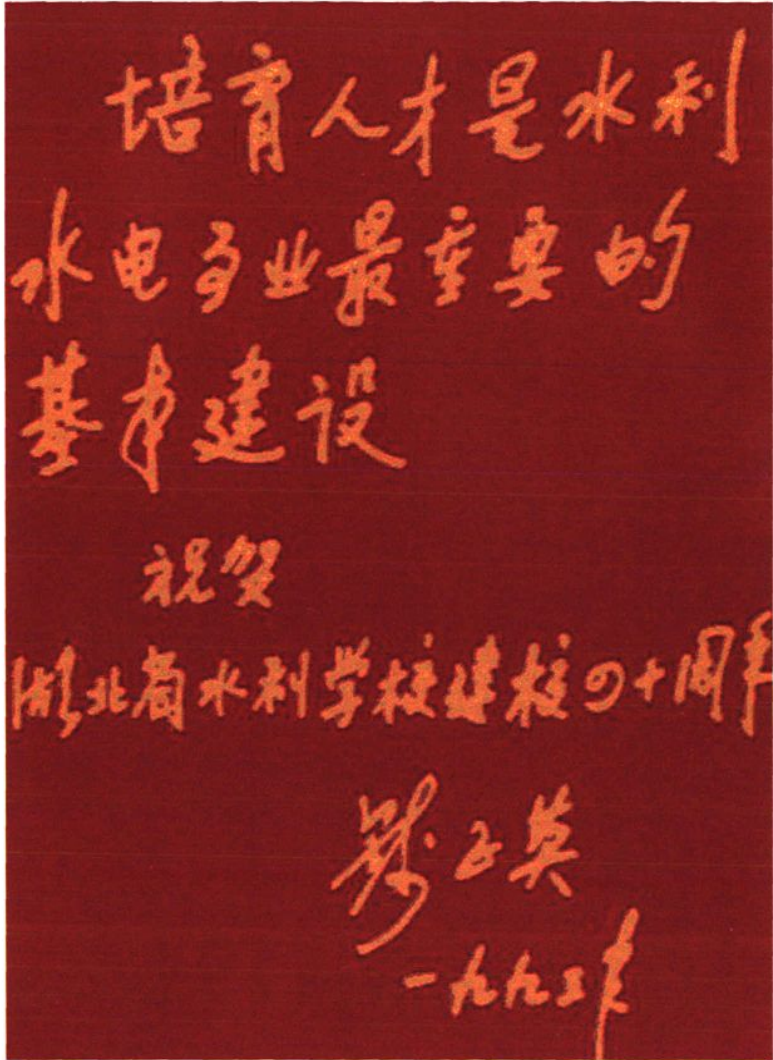 培育人才是水利
水电事业最重要的
基本建设
祝贺
湖北省水利学校建校四十周年
钱正英
一九九二年